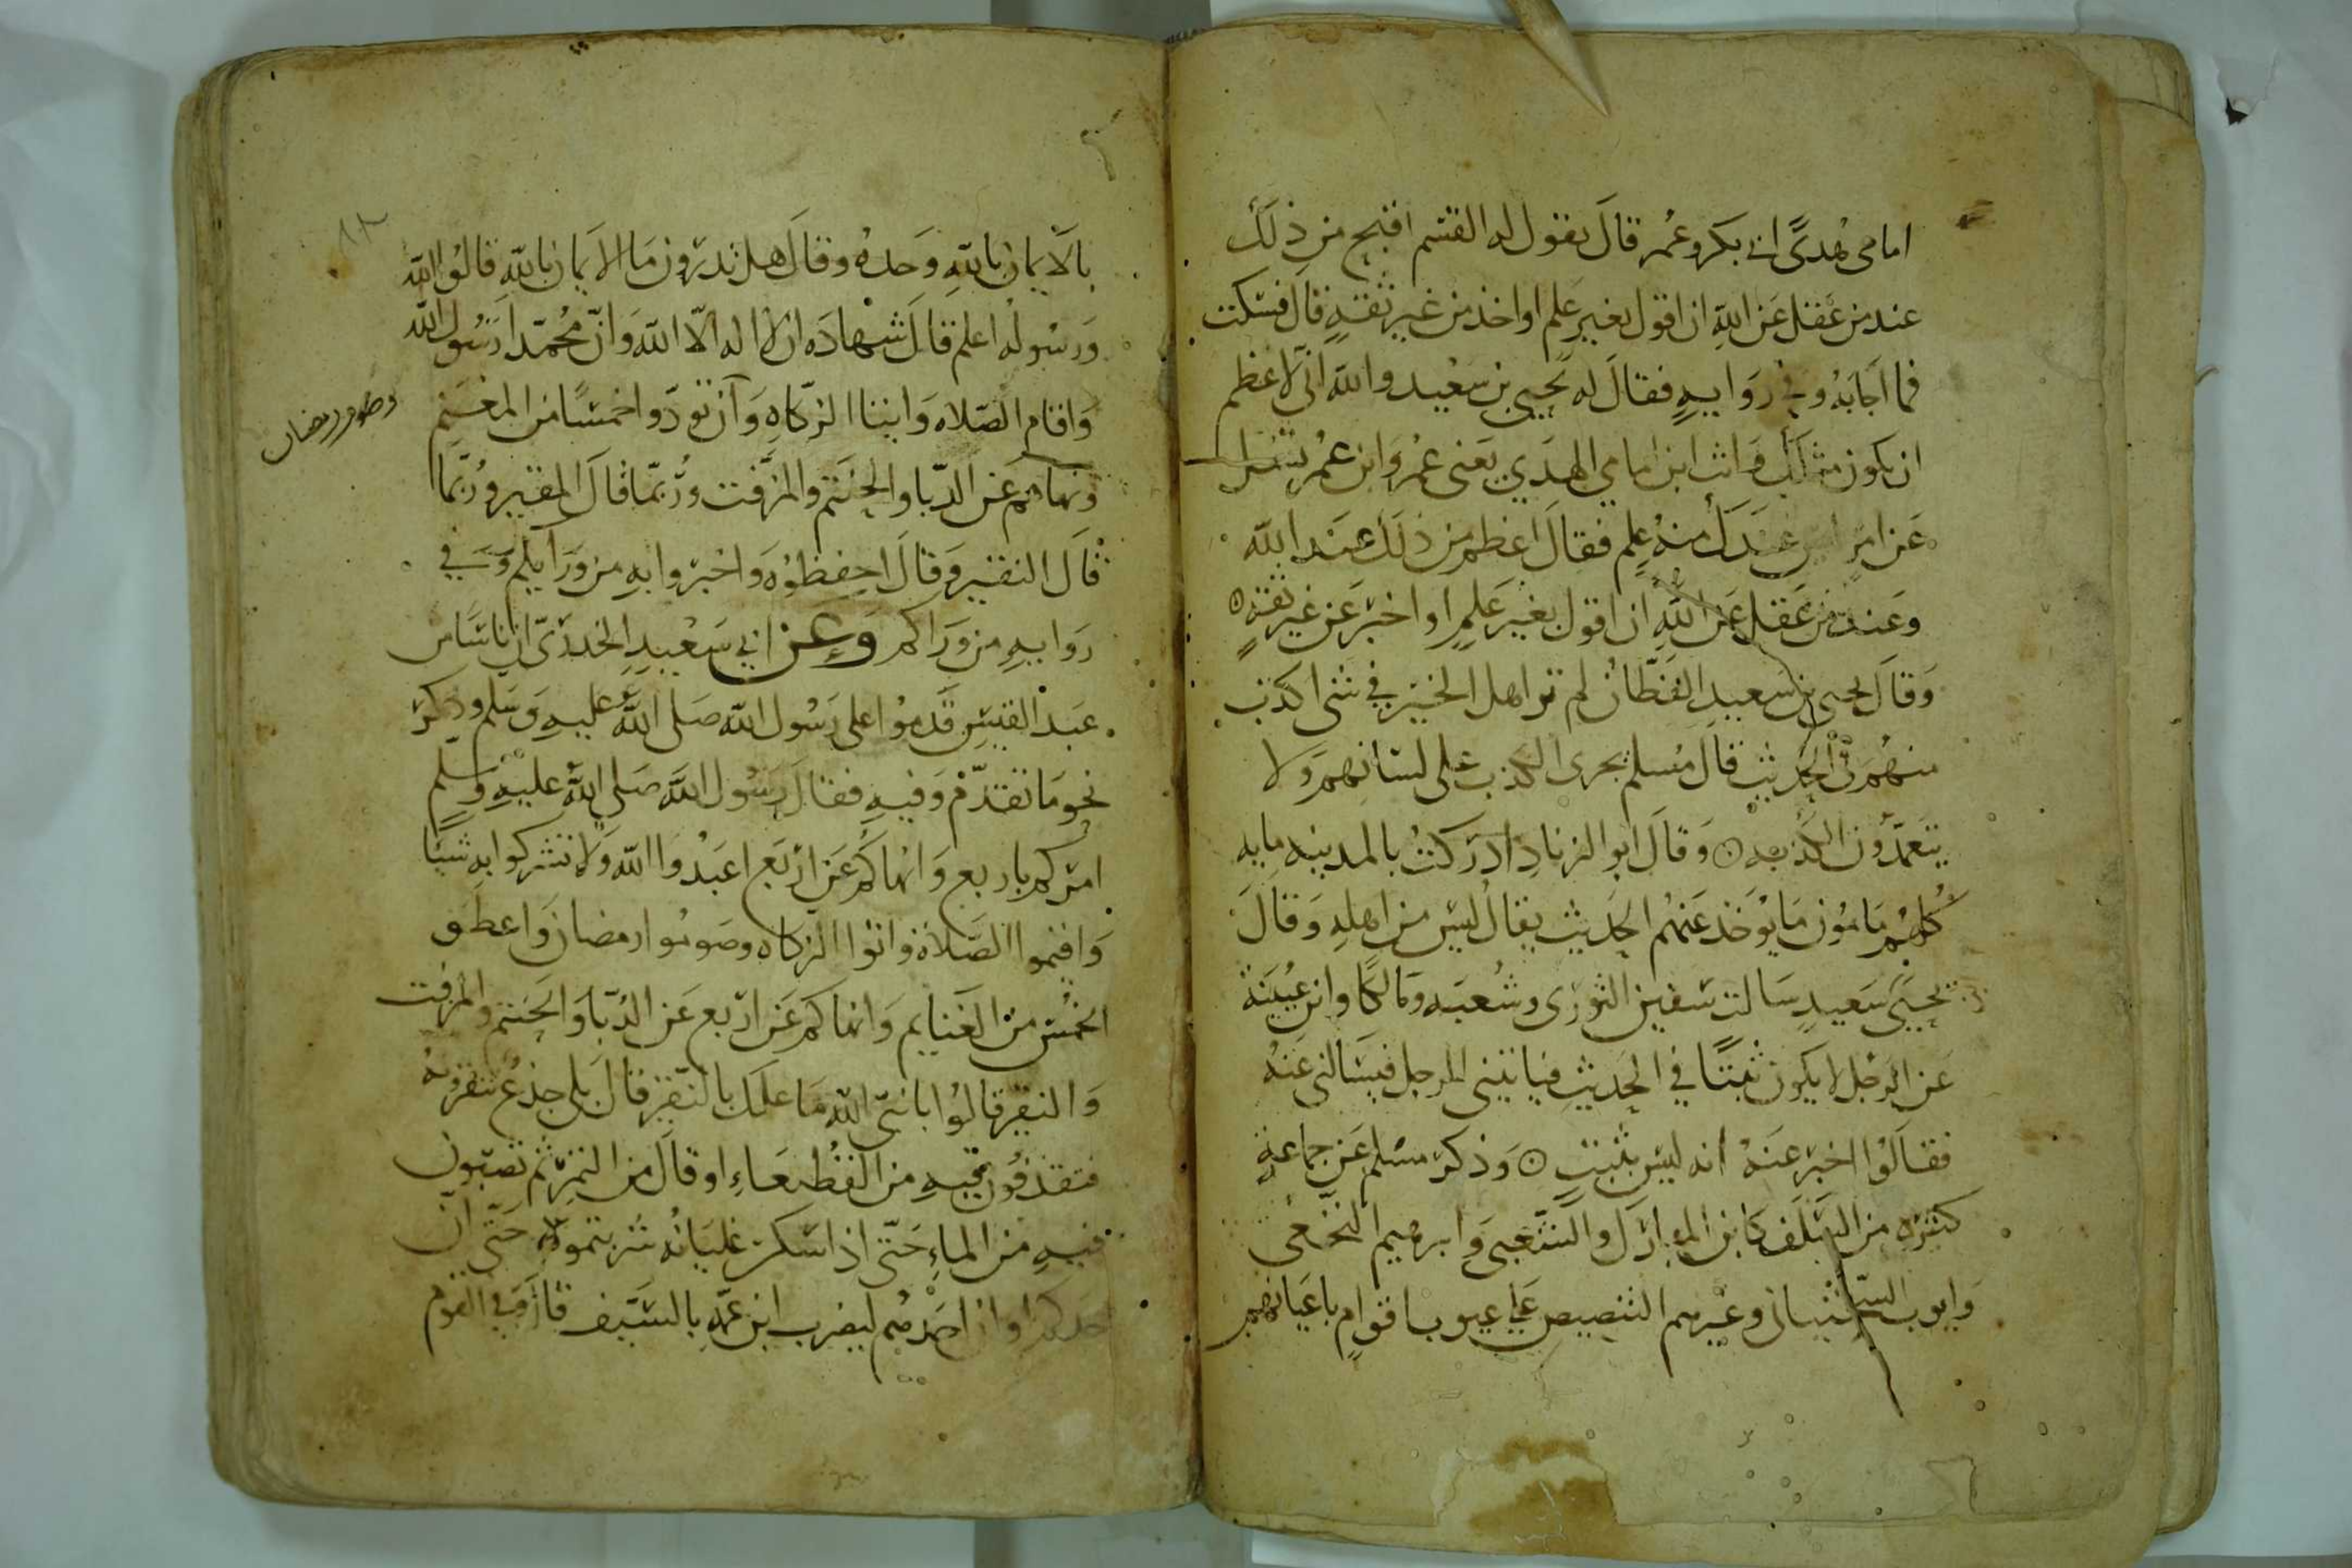 امامى هُدىً ابى بكر وعُمر قال يقول له القسم اقبح من ذلك
عند من عقل عن اللهِ ان اقول بغير علم او اخذ من غير ثقةٍ قال فسكت
فما اجابه وفي روايهٍ فقال له يحيى بن سعيد والله انى لاعظم
ان يكون مثلك وانت ابن امامي الهدي يعنى عمر وابن عمر تسل
عن امرٍ ليس عندك منه علم فقال اعظم من ذلك عند الله
وعند من عقل عن الله ان اقول بغير علمٍ او اخبر عن غير ثقةٍ
وقال يحيى بن سعيد القطان لم تر اهل الخير في شى اكذب
منهم في الحديث قال مسلم يجرى الكذب على لسانهم ولا
يتعمدون الكذب وقال ابو الزناد ادركت بالمدينه مايه
كلهم مامون ما يوخذ عنهم الحديث يقال ليس من اهله وقال
يحيى سعيد سالت سفين الثورى وشعبه ومالكا وابن عيينة
عن الرجل لا يكون ثبتا في الحديث فياتينى الرجل فيسالنى عنه
فقالوا اخبر عنه انه ليس بثبتٍ وذكر مسلم عن جماعةٍ
كثيره من السلف كابن المبارك والشعبى وابرهيم النخعى
وايوب السختيانى وغيرهم التنصيص على عيوب اقوامٍ باعيانهم
بالايمان بالله وحده وقال هل تدرون ما الايمان بالله قالوا الله
ورسوله اعلم قال شهاده ان لا اله الا الله وان محمدا رسول الله
واقام الصلاه وايتا الزكاه وان تودوا خمسا من المغنم
وصوم رمضان
ونهاهم عن الدبا والحنتم والمزفت وربما قال المقير وربما
قال النقير وقال احفظوه واخبروا به من ورايكم وفي
روايهٍ من وراكم وعن ابي سعيد الخدرىّ ان اناسا من
عبد القيس قدموا على رسول الله صلى الله عليه وسلم وذكر
نحو ما تقدم وفيه فقال رسول الله صلى الله عليه وسلم
امركم باربع وانهاكم عن اربع اعبدوا الله ولا تشركوا به شيئا
واقيموا الصلاة واتوا الزكاه وصوموا رمضان واعطوا
الخمس من الغنايم وانهاكم عن اربع عن الدبا والحنتم والمزفت
والنقير قالوا يا نبى الله ما علمك بالنقير قال بلى جذع تنقرونه
فتقذفون فيه من القطيعاء او قال من التمر ثم تصبون
فيه من الماء حتى اذا سكن غليانه شربتموه حتى ان
احدكم او ان احدهم ليضرب ابن عمه بالسيف قال وفي القوم